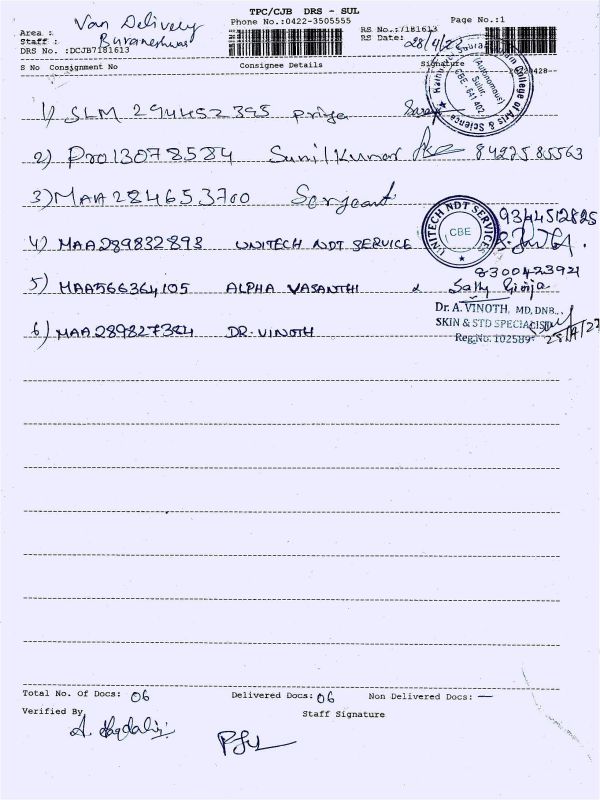 TPC/CJB DRS - SUL
Area : Van Delivery
Phone No.:0422-3505555
Page No.:1
Staff :
RS No.:7181613
RS Date: 28/4/22
DRS No. :DCJB7181613
S No Consignment No Consignee Details Signature
College of Arts & Science
(Autonomous)
Sulur,
CBE - 641 402.
1) SLM 294452395 Priya
2) Pro13078584 Sunil Kumar 8422585563
3) MAA284653700 Serjeant
UNITECH NDT SERVICES
CBE
9344512825
4) MAA289832893 UNITECH NDT SERVICE
8300423921
5) MAA566364105 ALPHA VASANTHI
Dr. A. VINOTH, MD, DNB.,
SKIN & STD SPECIALIST
Reg.No. 102589
6) MAA289827384 DR. VINOTH
Total No. Of Docs: 06 Delivered Docs: 06 Non Delivered Docs: —
Verified By
Staff Signature